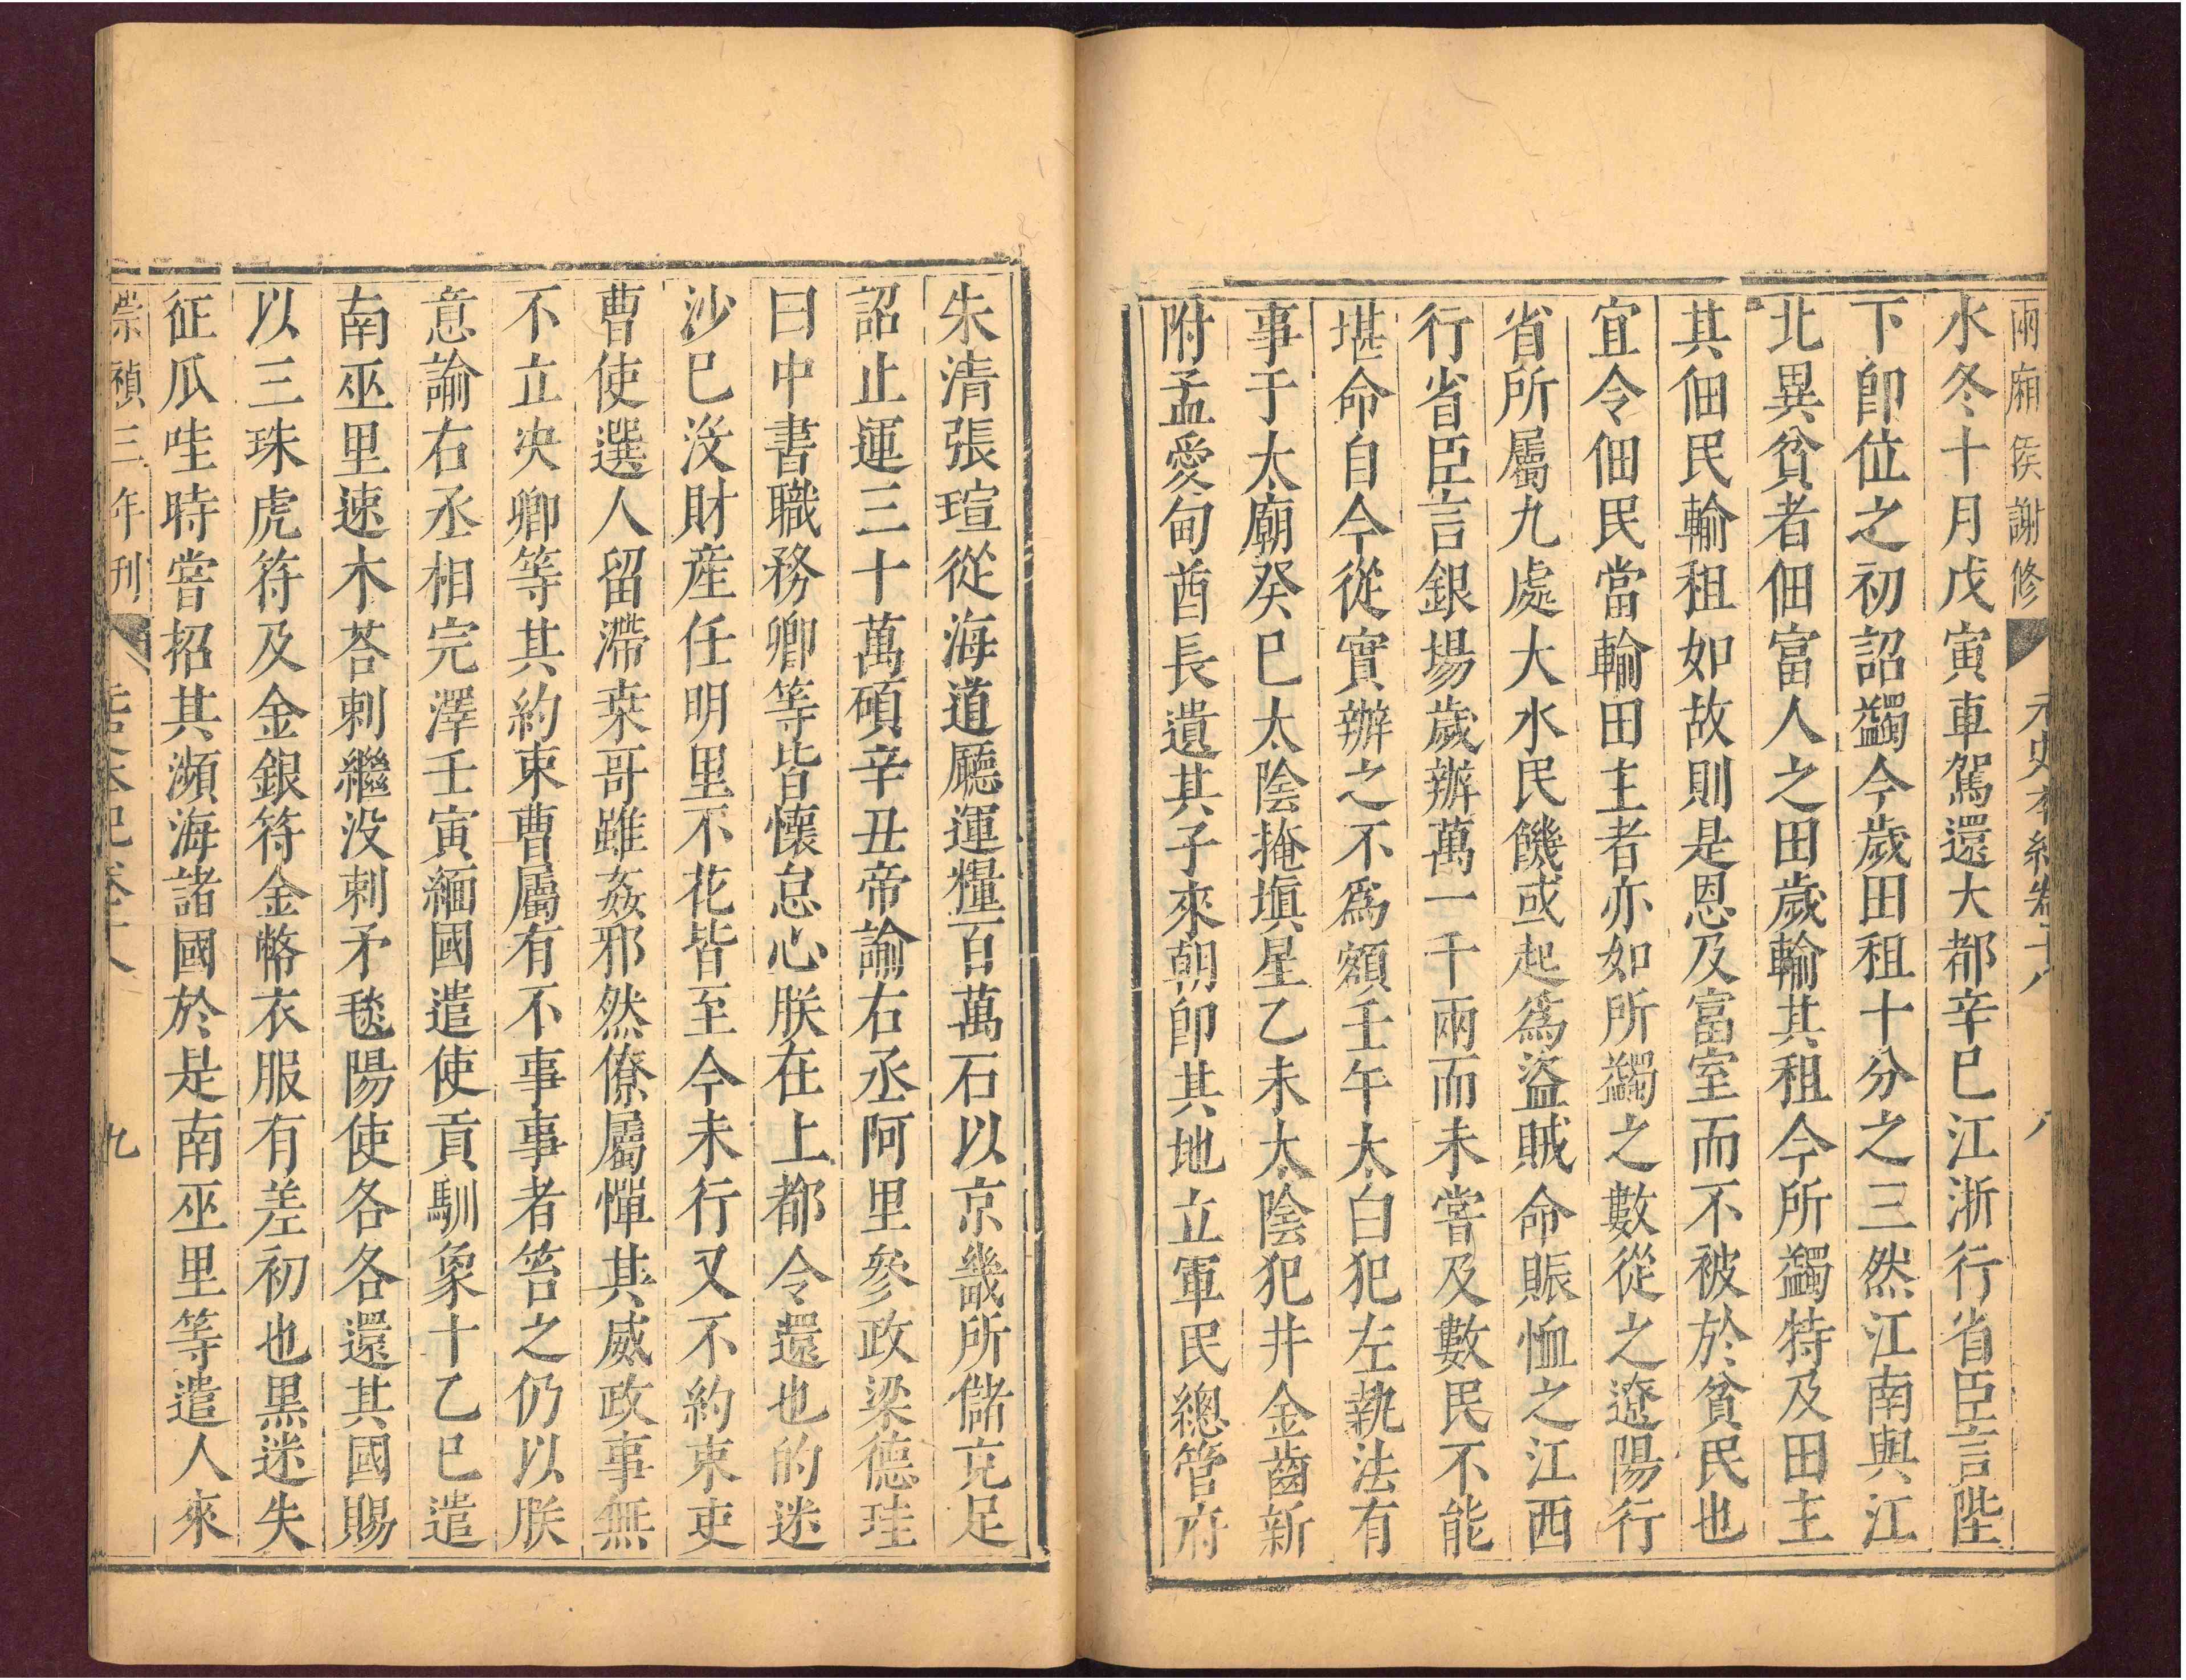 兩廂侯謝修 元史本紀卷十八 八
水冬十月戊寅車駕還大都辛巳江浙行省臣言陛
下卽位之初詔蠲今歲田租十分之三然江南與江
北異貧者佃富人之田歲輸其租今所蠲特及田主
其佃民輸租如故則是恩及富室而不被於貧民也
宜令佃民當輸田主者亦如所蠲之數從之遼陽行
省所屬九處大水民饑或起爲盜賊命賑恤之江西
行省臣言銀場歲辦萬一千兩而未嘗及數民不能
堪命自今從實辦之不爲額壬午太白犯左執法有
事于太廟癸巳太陰掩塡星乙未太陰犯井金齒新
附孟愛甸酋長遣其子來朝卽其地立軍民總管府
朱清張瑄從海道廳運糧百萬石以京畿所儲充足
詔止運三十萬碩辛丑帝諭右丞阿里參政梁德珪
曰中書職務卿等皆懷怠心朕在上都令還也的迷
沙巳沒財產任明里不花皆至今未行又不約束吏
曹使選人留滯桒哥雖姦邪然僚屬憚其威政事無
不立決卿等其約束曹屬有不事事者笞之仍以朕
意諭右丞相完澤壬寅緬國遣使貢馴象十乙巳遣
南巫里速木荅剌繼沒剌矛毯陽使各各還其國賜
以三珠虎符及金銀符金幣衣服有差初也黑迷失
征瓜哇時嘗招其瀕海諸國於是南巫里等遣人來
崇禎三年刊 元史本紀卷十八 九